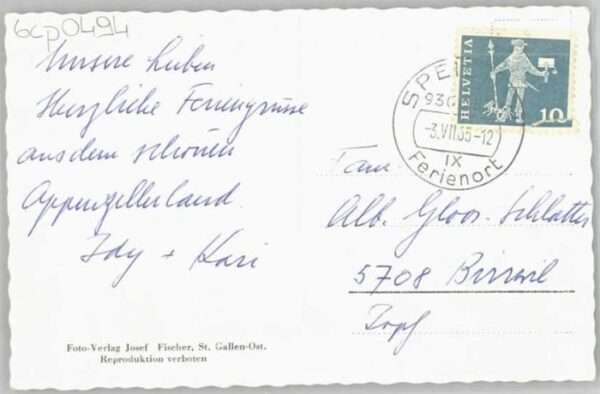 bcp0494
Unsere Lieben
Herzliche Feriengrüsse
aus dem schönen
Appenzellerland.
Idy + Kari
Foto-Verlag Josef Fischer, St. Gallen-Ost.
Reproduktion verboten
HELVETIA
10
SPEI
930
-3.VII.65-12
IX
Ferienort
Fam.
Alb. Gloor-Schlatter
5708 Birrwil